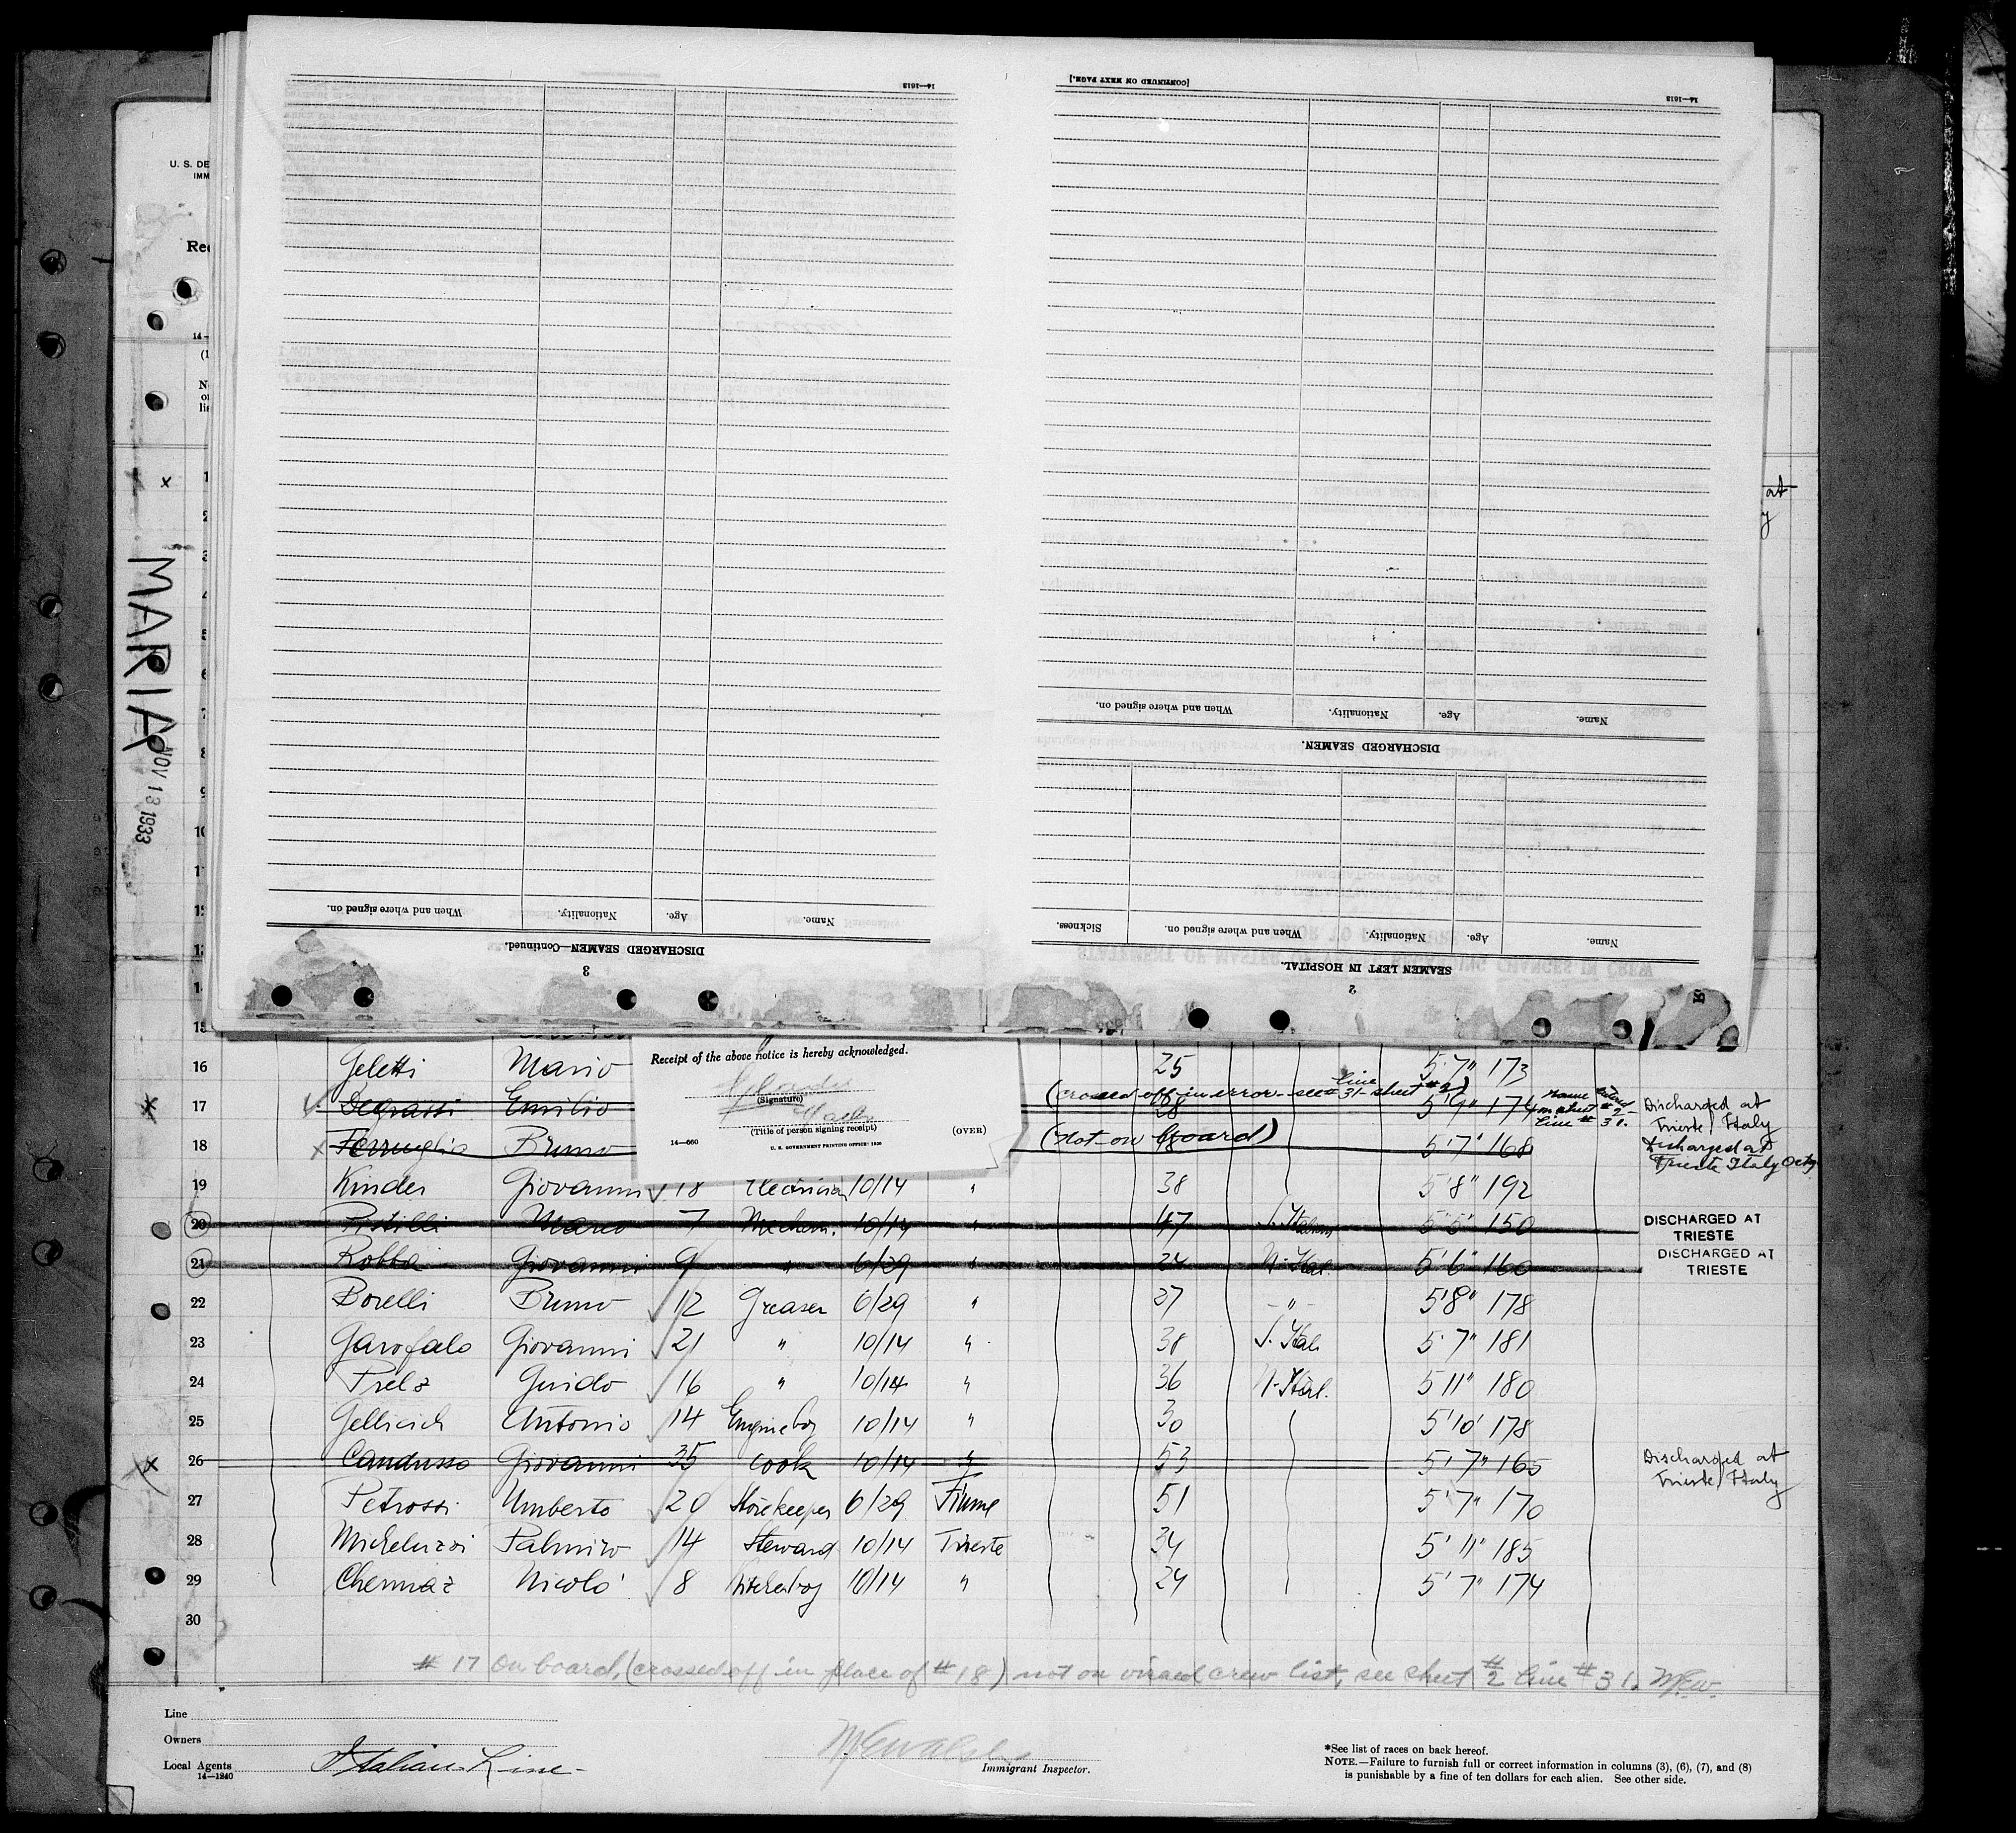 14—1613
[CONTINUED ON NEXT PAGE.]
14—1613
U. S. DE
IMM
Re
14—
(1
N
o
li
at
y
x
1
2
3
4
5
6
7
8
9
10
11
MARIA
NOV 13 1933
When and where signed on.
Nationality.
Age.
Name.
DISCHARGED SEAMEN—Continued.
3
When and where signed on.
Nationality.
Age.
Name.
DISCHARGED SEAMEN.
Sickness.
When and where signed on.
Nationality.
Age.
Name.
SEAMEN LEFT IN HOSPITAL.
2
STATEMENT OF MASTER CHANGES IN CREW
15
Receipt of the above notice is hereby acknowledged.
(Signature)
Master
(Title of person signing receipt)
14—660
U. S. GOVERNMENT PRINTING OFFICE: 1930
(OVER)
16 Geletti Mario 25 5'7" 173
(crossed off in error - see line # 31 - sheet # 2)
x 17 Degrassi Emilio 28 5'9" 174 name entered on sheet # 2 - line # 31. Discharged at Trieste, Italy
18 x Ferruglio Bruno (not on board) 5'7" 168 Discharged at Trieste Italy
19 Kinder Giovanni 18 10/14 " 38 5'8" 192
20 Pistilli Marco 7 Mechan. 10/14 " 47 S. Italian 5'5" 150 DISCHARGED AT TRIESTE
21 Robba Giovanni 9 " 6/29 " 24 N. Ital. 5'6" 160 DISCHARGED AT TRIESTE
22 Borelli Bruno 12 Greaser 6/29 " 27 - " - 5'8" 178
23 Garofalo Giovanni 21 " 10/14 " 38 S. Ital. 5'7" 181
24 Prelz Guido 16 " 10/14 " 36 N. Ital. 5'11" 180
25 Gellicich Antonio 14 Engine boy 10/14 " 30 5'10" 178
x 26 Candusso Giovanni 35 Cook 10/14 " 53 5'7" 165 Discharged at Trieste, Italy
27 Petrossi Umberto 20 Storekeeper 6/29 Fiume 51 5'7" 170
28 Micheluzzi Palmiro 14 Steward 10/14 Trieste 34 5'11" 185
29 Chermaz Nicolo' 8 Kitchenboy 10/14 " 24 5'7" 174
30
# 17 on board, (crossed off in place of # 18) not on visaed crew list, see sheet # 2 line # 31. McEw.
Line
Owners
Local Agents Italian Line
14—1240
Immigrant Inspector.
*See list of races on back hereof.
NOTE.—Failure to furnish full or correct information in columns (3), (6), (7), and (8)
is punishable by a fine of ten dollars for each alien. See other side.